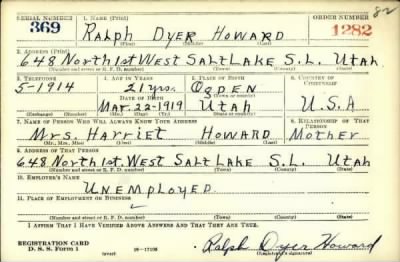 SERIAL NUMBER 1. NAME (Print) ORDER NUMBER
82
369 RALPH DYER HOWARD 1282
(First) (Middle) (Last)
2. ADDRESS (Print)
648 NORTH 1st WEST SALT LAKE S.L. UTAH
(Number and street or R. F. D. number) (Town) (County) (State)
3. TELEPHONE 4. AGE IN YEARS 5. PLACE OF BIRTH 6. COUNTRY OF CITIZENSHIP
5-1914 21 yrs. OGDEN
DATE OF BIRTH (Town or county)
MAR. 22-1919 UTAH U.S.A
(Exchange) (Number) (Mo.) (Day) (Yr.) (State or country)
7. NAME OF PERSON WHO WILL ALWAYS KNOW YOUR ADDRESS 8. RELATIONSHIP OF THAT PERSON
MRS. HARRIET HOWARD MOTHER
(Mr., Mrs., Miss) (First) (Middle) (Last)
9. ADDRESS OF THAT PERSON
648 NORTH 1st. WEST SALT LAKE S.L. UTAH
(Number and street or R. F. D. number) (Town) (County) (State)
10. EMPLOYER'S NAME
UNEMPLOYED
11. PLACE OF EMPLOYMENT OR BUSINESS
(Number and street or R. F. D. number) (Town) (County) (State)
I AFFIRM THAT I HAVE VERIFIED ABOVE ANSWERS AND THAT THEY ARE TRUE.
REGISTRATION CARD
D. S. S. Form 1 (over) Ralph Dyer Howard
(Registrant's signature)